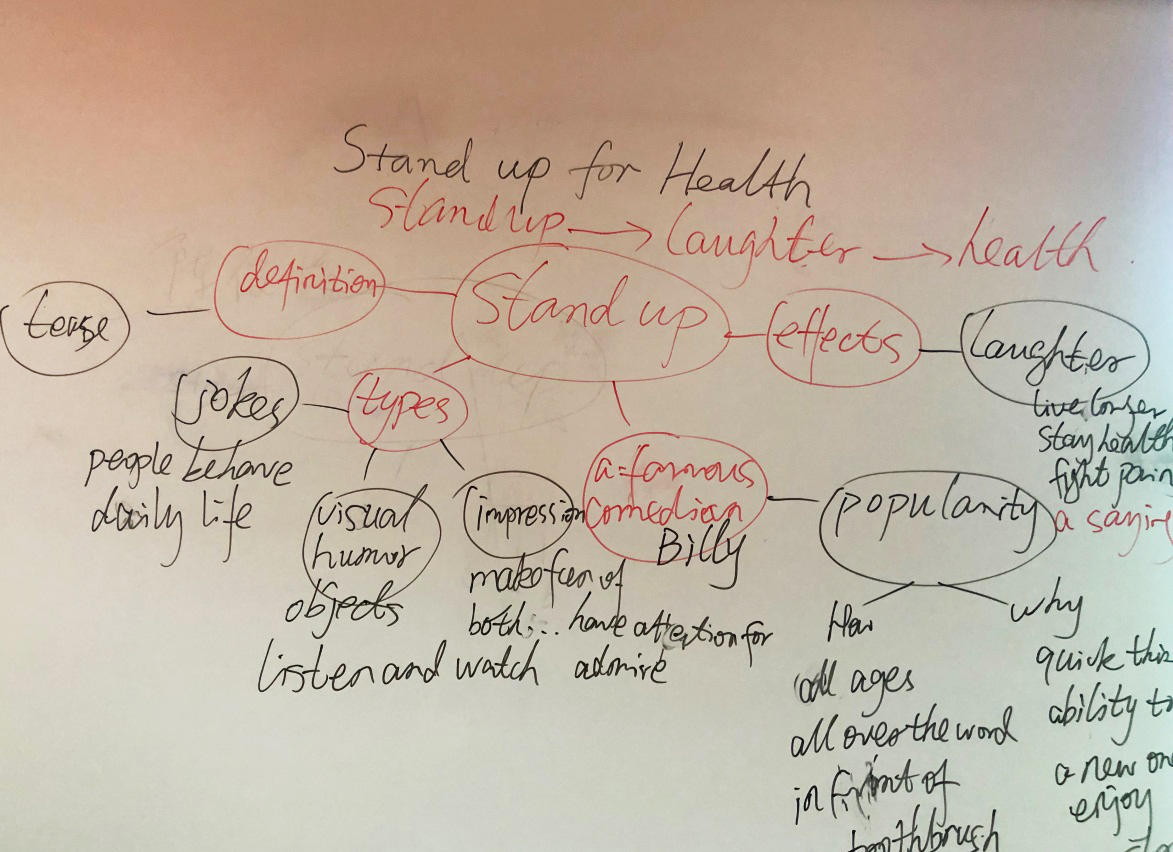 Stand up for Health
Stand up → laughter → health
tense
definition
Stand up
effects
Laughter
live longer
stay health
fight pain
a saying
jokes
people behave
daily life
types
visual
humor
objects
listen and watch
impression
make fun of
both... have attention for
admire
a famous
comedian
Billy
popularity
How
all ages
all over the word
in front of
toothbrush
why
quick thin
ability to
a new on
enjoy